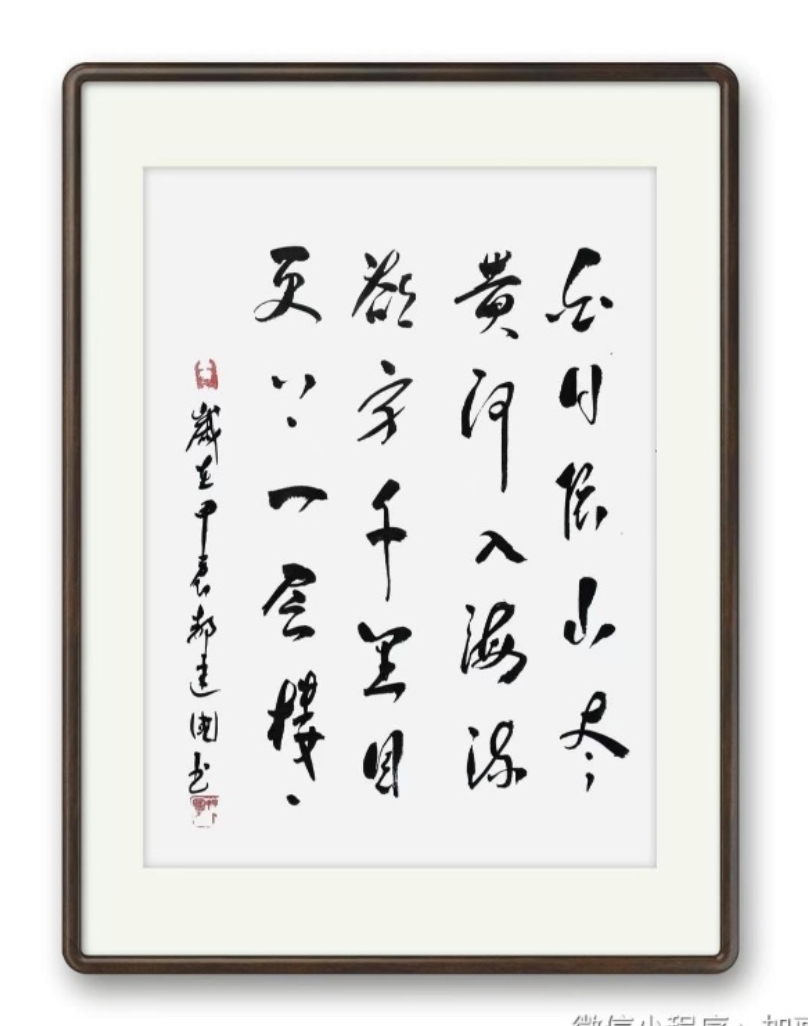 白日依山尽
黄河入海流
欲穷千里目
更上一层樓
歲在甲辰郝建國书
微信小程序：